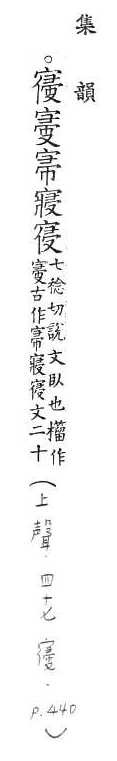 集韻
。寑寢七稔切說文臥也籒作
古作寢文二十
(上聲.四十七寑.p.440)